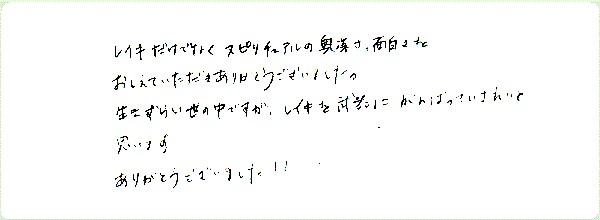 レイキだけでなく スピリチュアルの奥深さ、面白さを
おしえていただきありがとうございました。
生きずらい世の中ですが、レイキを武器に がんばっていきたいと
思います
ありがとうございました!!